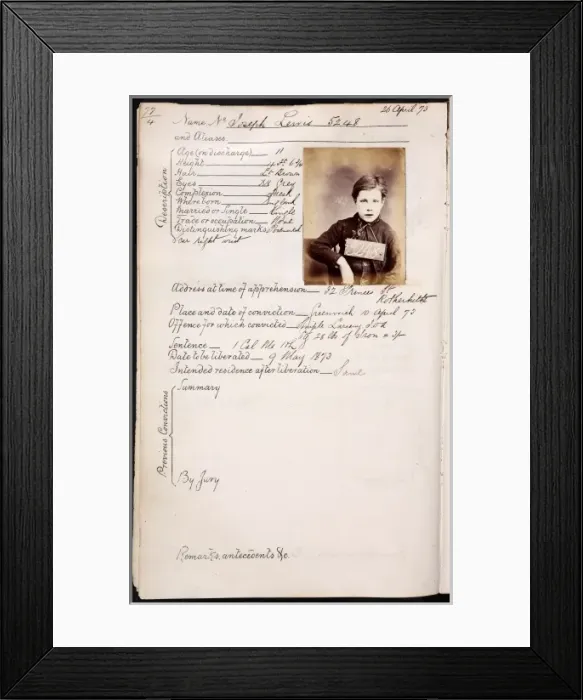 73/4
26 April 73
Name No Joseph Lewis 5248
and Aliases
Description
Age (on discharge) 11
Height 4 ft 6 3/4
Hair Lt Brown
Eyes Grey
Complexion Fresh
Where born England
Married or Single Single
Trade or occupation None
Distinguishing marks
Scar right wrist
Address at time of apprehension St
Rotherhithe
Place and date of conviction Greenwich 10 April 73
Offence for which convicted Simple Larceny
of 28 lbs of Iron
Sentence 1 Cal Mo
Date to be liberated 9 May 1873
Intended residence after liberation Same
Previous Convictions
Summary
By Jury
Remarks, antecedents &c.